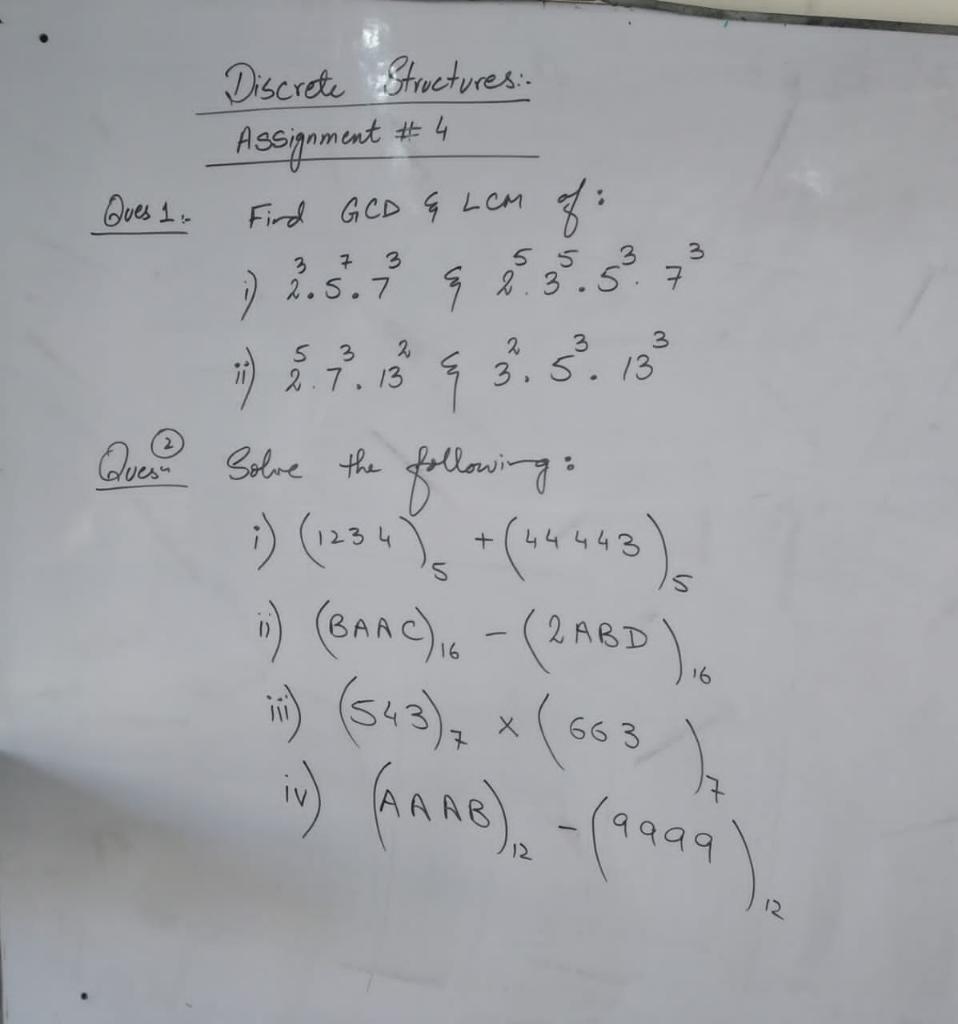 Discrete Structures:-
Assignment # 4
Ques 1:- Find GCD & LCM of:
i) 2³.5⁷.7³ & 2⁵.3⁵.5³.7³
ii) 2⁵.7³.13² & 3².5³.13³
Ques:- ② Solve the following:
i) (1234)₅ + (44443)₅
ii) (BAAC)₁₆ - (2ABD)₁₆
iii) (543)₇ × (663)₇
iv) (AAAB)₁₂ - (9999)₁₂